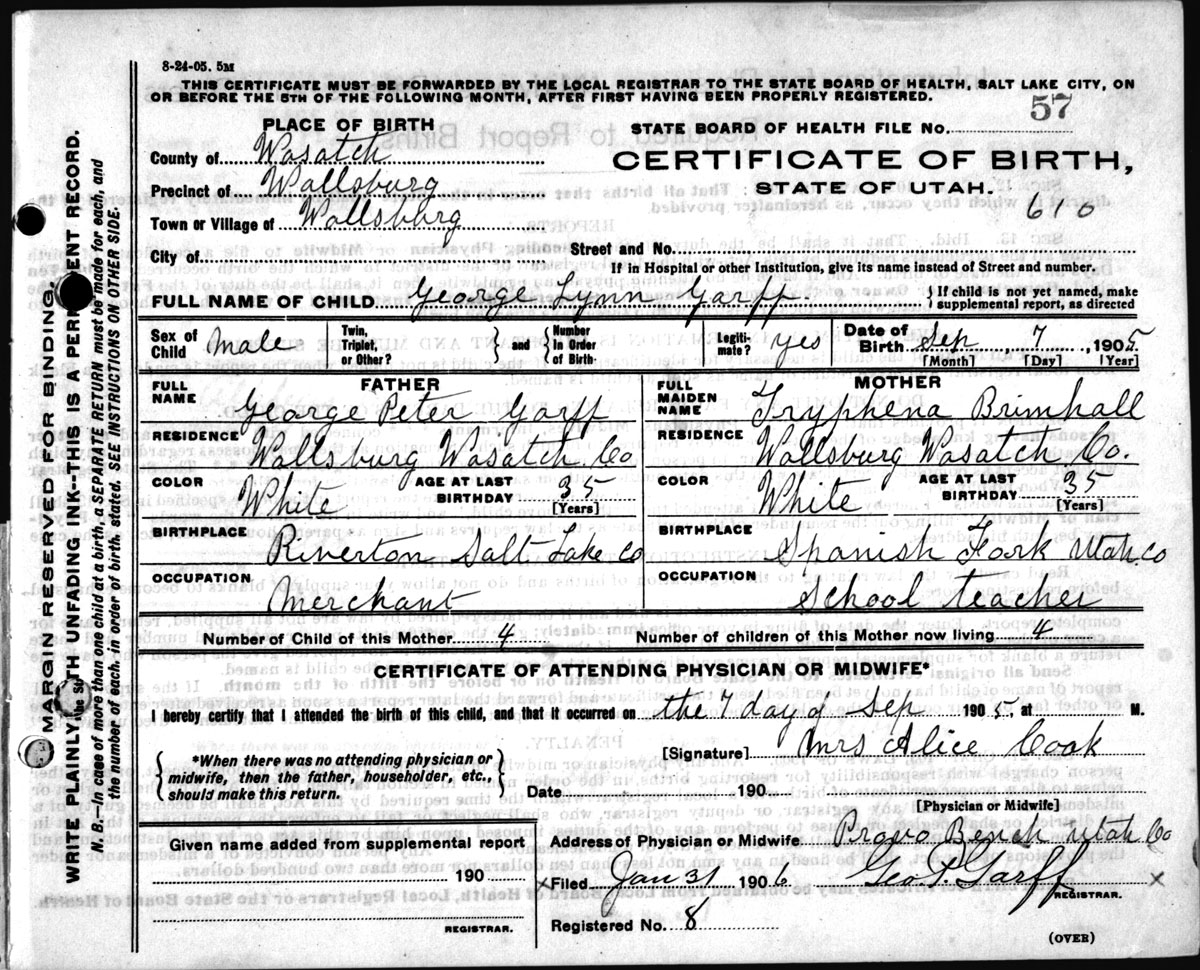 8-24-05. 5M
THIS CERTIFICATE MUST BE FORWARDED BY THE LOCAL REGISTRAR TO THE STATE BOARD OF HEALTH, SALT LAKE CITY, ON
OR BEFORE THE 5TH OF THE FOLLOWING MONTH, AFTER FIRST HAVING BEEN PROPERLY REGISTERED.
PLACE OF BIRTH
STATE BOARD OF HEALTH FILE NO. 57
County of Wasatch
CERTIFICATE OF BIRTH,
Precinct of Wallsburg
STATE OF UTAH.
Town or Village of Wallsburg
610
City of
Street and No.
If in Hospital or other Institution, give its name instead of Street and number.
FULL NAME OF CHILD. George Lynn Garff { If child is not yet named, make
supplemental report, as directed
Sex of Child male Twin, Triplet, or Other? } and { Number in Order of Birth. Legiti-mate? yes Date of Birth Sep 7, 1905
[Month] [Day] [Year]
FATHER
FULL NAME George Peter Garff
RESIDENCE Wallsburg Wasatch Co
COLOR White AGE AT LAST BIRTHDAY 35
[Years]
BIRTHPLACE Riverton Salt Lake Co
OCCUPATION Merchant
MOTHER
FULL MAIDEN NAME Tryphena Brimhall
RESIDENCE Wallsburg Wasatch Co.
COLOR White AGE AT LAST BIRTHDAY 35
[Years]
BIRTHPLACE Spanish Fork Utah Co
OCCUPATION School teacher
Number of Child of this Mother 4 Number of children of this Mother now living 4
CERTIFICATE OF ATTENDING PHYSICIAN OR MIDWIFE*
I hereby certify that I attended the birth of this child, and that it occurred on the 7 day of Sep 1905, at M.
{ *When there was no attending physician or
midwife, then the father, householder, etc.,
should make this return. }
[Signature] Mrs Alice Cook
Date 190
[Physician or Midwife]
Given name added from supplemental report
190
REGISTRAR.
Address of Physician or Midwife Provo Bench Utah Co
x Filed Jan 31 1906 Geo P. Garff x
REGISTRAR.
Registered No. 8
(OVER)
MARGIN RESERVED FOR BINDING.
WRITE PLAINLY WITH UNFADING INK--THIS IS A PERMANENT RECORD.
N. B.--In case of more than one child at a birth, a SEPARATE RETURN must be made for each, and
the number of each, in order of birth, stated. SEE INSTRUCTIONS ON OTHER SIDE.